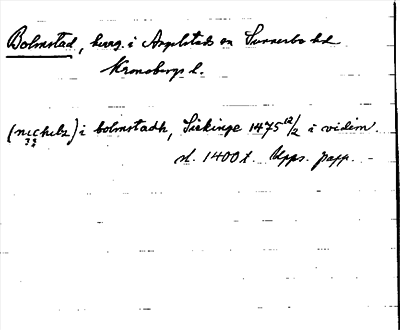 Bolmstad, herrg. i Angelstads sn Sunnerbo hd
Kronobergs l.
(nichelz) i bolmstadh, Siekinge 1475 12/2 i vidim.
sl. 1400 t. Upps. papp.